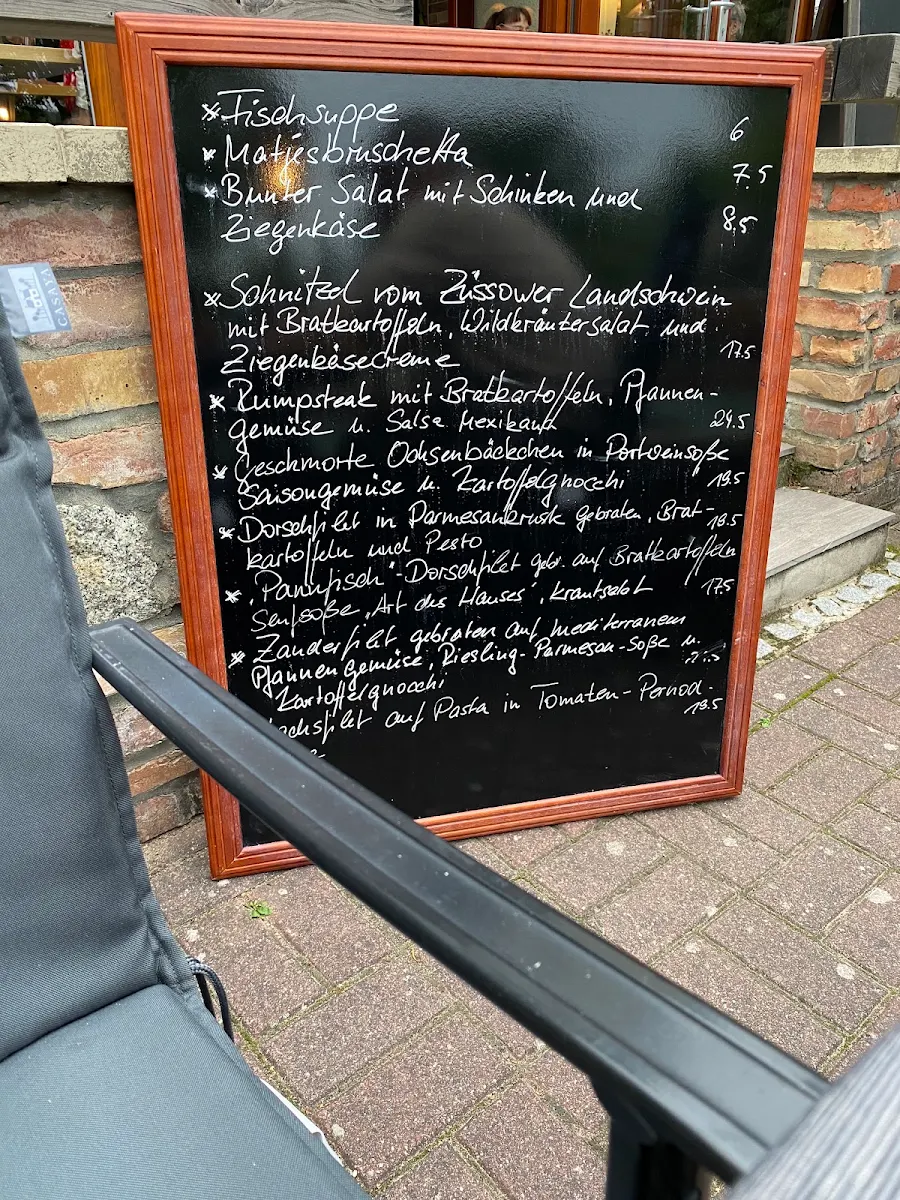 * Fischsuppe 6
* Matjesbruschetta 7.5
* Bunter Salat mit Schinken und 8.5
Ziegenkäse
* Schnitzel vom Züssower Landschwein
mit Bratkartoffeln, Wildkräutersalat und
Ziegenkäsecreme 17.5
* Rumpsteak mit Bratkartoffeln, Pfannen-
gemüse u. Salsa Mexikana 24.5
* Geschmorte Ochsenbäckchen in Portweinsoße
Saisongemüse u. Kartoffelgnocchi 19.5
* Dorschfilet in Parmesankruste gebraten, Brat- 18.5
kartoffeln und Pesto
* "Pannfisch" - Dorschfilet gebr. auf Bratkartoffeln
Senfsoße "Art des Hauses", Krautsalat 17.5
* Zanderfilet gebraten auf mediterranem
Pfannengemüse, Riesling-Parmesan-Soße u.
Kartoffelgnocchi
auf Pasta in Tomaten-Pernod- 19.5
CASAYA